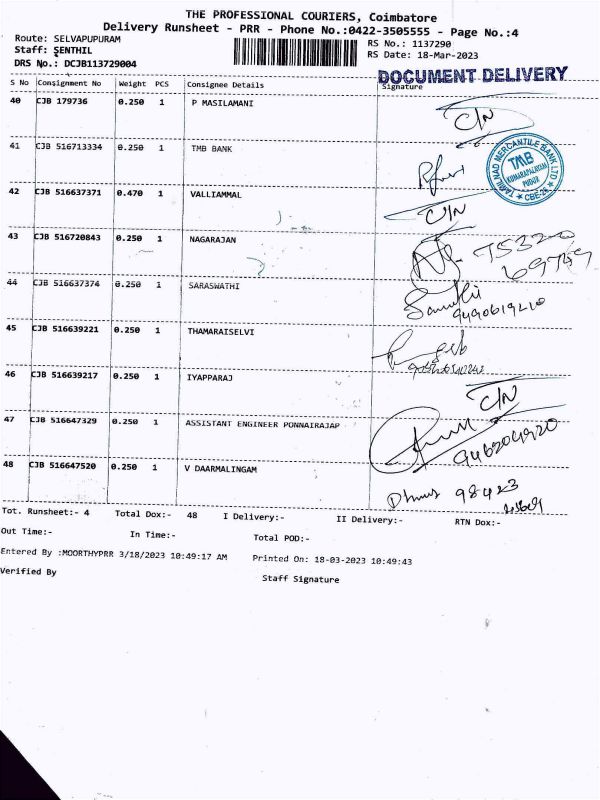 THE PROFESSIONAL COURIERS, Coimbatore
Delivery Runsheet - PRR - Phone No.:0422-3505555 - Page No.:4
Route: SELVAPUPURAM
RS No.: 1137290
Staff: SENTHIL
RS Date: 18-Mar-2023
DRS No.: DCJB113729004
DOCUMENT DELIVERY
S No Consignment No Weight PCS Consignee Details Signature
40 CJB 179736 0.250 1 P MASILAMANI C/N
41 CJB 516713334 0.250 1 TMB BANK
TAMILNAD MERCANTILE BANK LTD
TMB
CBE-26
42 CJB 516637371 0.470 1 VALLIAMMAL C/N
43 CJB 516720843 0.250 1 NAGARAJAN 75320
69749
44 CJB 516637374 0.250 1 SARASWATHI
9490619210
45 CJB 516639221 0.250 1 THAMARAISELVI
46 CJB 516639217 0.250 1 IYAPPARAJ C/N
47 CJB 516647329 0.250 1 ASSISTANT ENGINEER PONNAIRAJAP
9446204920
48 CJB 516647520 0.250 1 V DAARMALINGAM 98423
Tot. Runsheet:- 4 Total Dox:- 48 I Delivery:- II Delivery:- RTN Dox:-
Out Time:- In Time:- Total POD:-
Entered By :MOORTHYPRR 3/18/2023 10:49:17 AM Printed On: 18-03-2023 10:49:43
Verified By Staff Signature